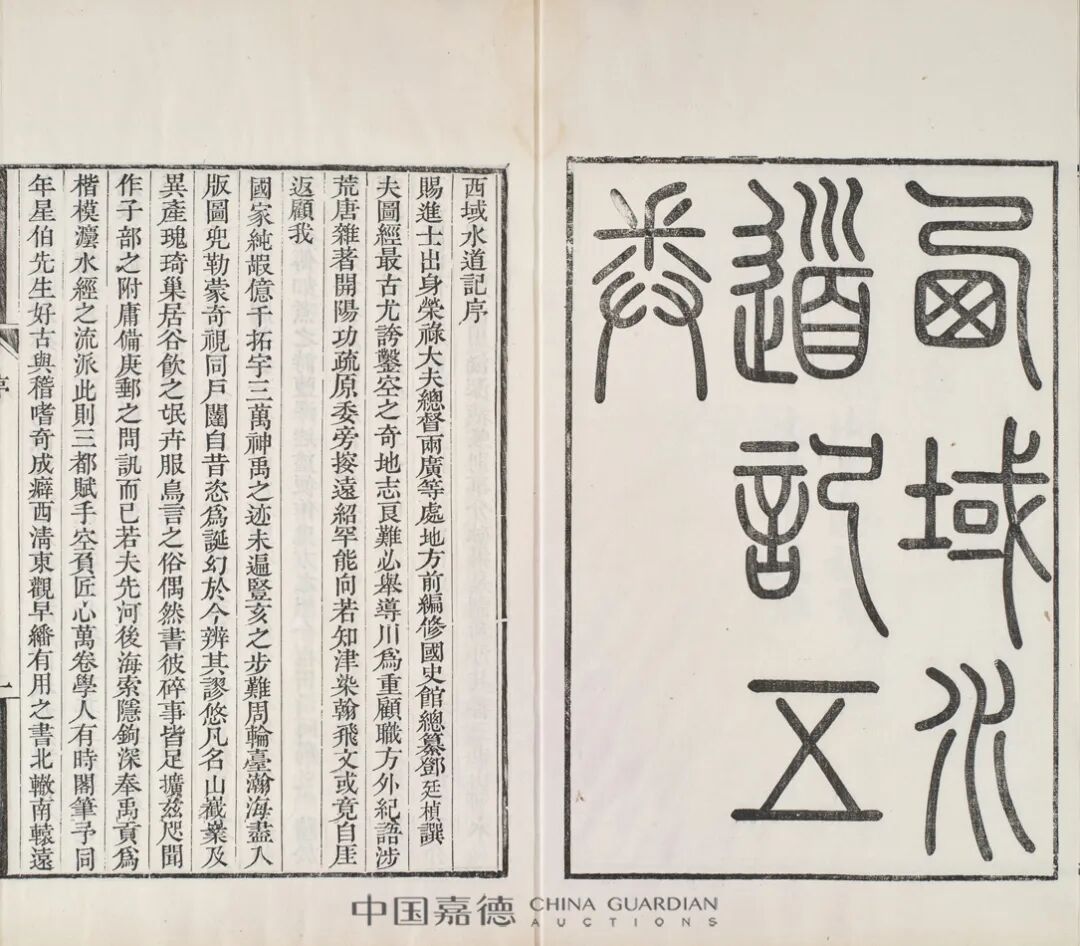 西域水
道記五
卷
西域水道記序
賜進士出身榮祿大夫總督兩廣等處地方前編修國史館總纂鄧廷楨譔
夫圖經最古尤誇鑿空之奇地志良難必舉導川爲重顧職方外紀語涉
荒唐雜著開陽功疏原委旁接遠紹罕能向若知津染翰飛文或竟自厓
返顧我
國家純嘏億千拓宇三萬神禹之迹未遍豎亥之步難周輪臺瀚海盡入
版圖兜勒蒙奇視同戶闥自昔恣爲誕幻於今辨其謬悠凡名山嶻嶪及
異產瑰琦巢居谷飲之氓卉服鳥言之俗偶然書彼碎事皆足擴茲咫聞
作子部之附庸備庚郵之問訊而已若夫先河後海索隱鉤深奉禹貢爲
楷模瀠水經之流派此則三都賦手空負匠心萬卷學人有時閣筆予同
年星伯先生好古與稽嗜奇成癖西清東觀早繙有用之書北轍南轅遠
序
一
中国嘉德 CHINA GUARDIAN
AUCTIONS